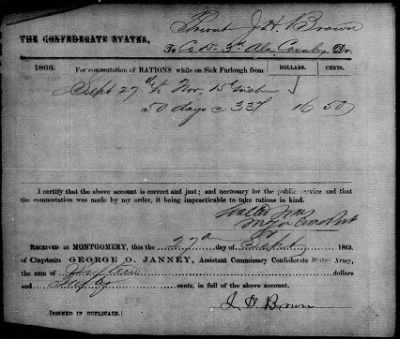 Privat J. H. Brown
THE CONFEDERATE STATES,
To Co D. 3rd Ala Cavalry Dr.
1863. For commutation of RATIONS while on Sick Furlough from DOLLARS. CENTS.
Sept 27th to Nov. 15th
50 days @ 33¢ 16 50
I certify that the above account is correct and just; and necessary for the public service and that
the commutation was made by my order, it being impracticable to take rations in kind.
RECEIVED AT MONTGOMERY, this 27th day of 1863.
of Captain GEORGE O. JANNEY, Assistant Commissary Confederate States Army,
the sum of dollars
and cents, in full of the above account.
J. H. Brown
[SIGNED IN DUPLICATE.]